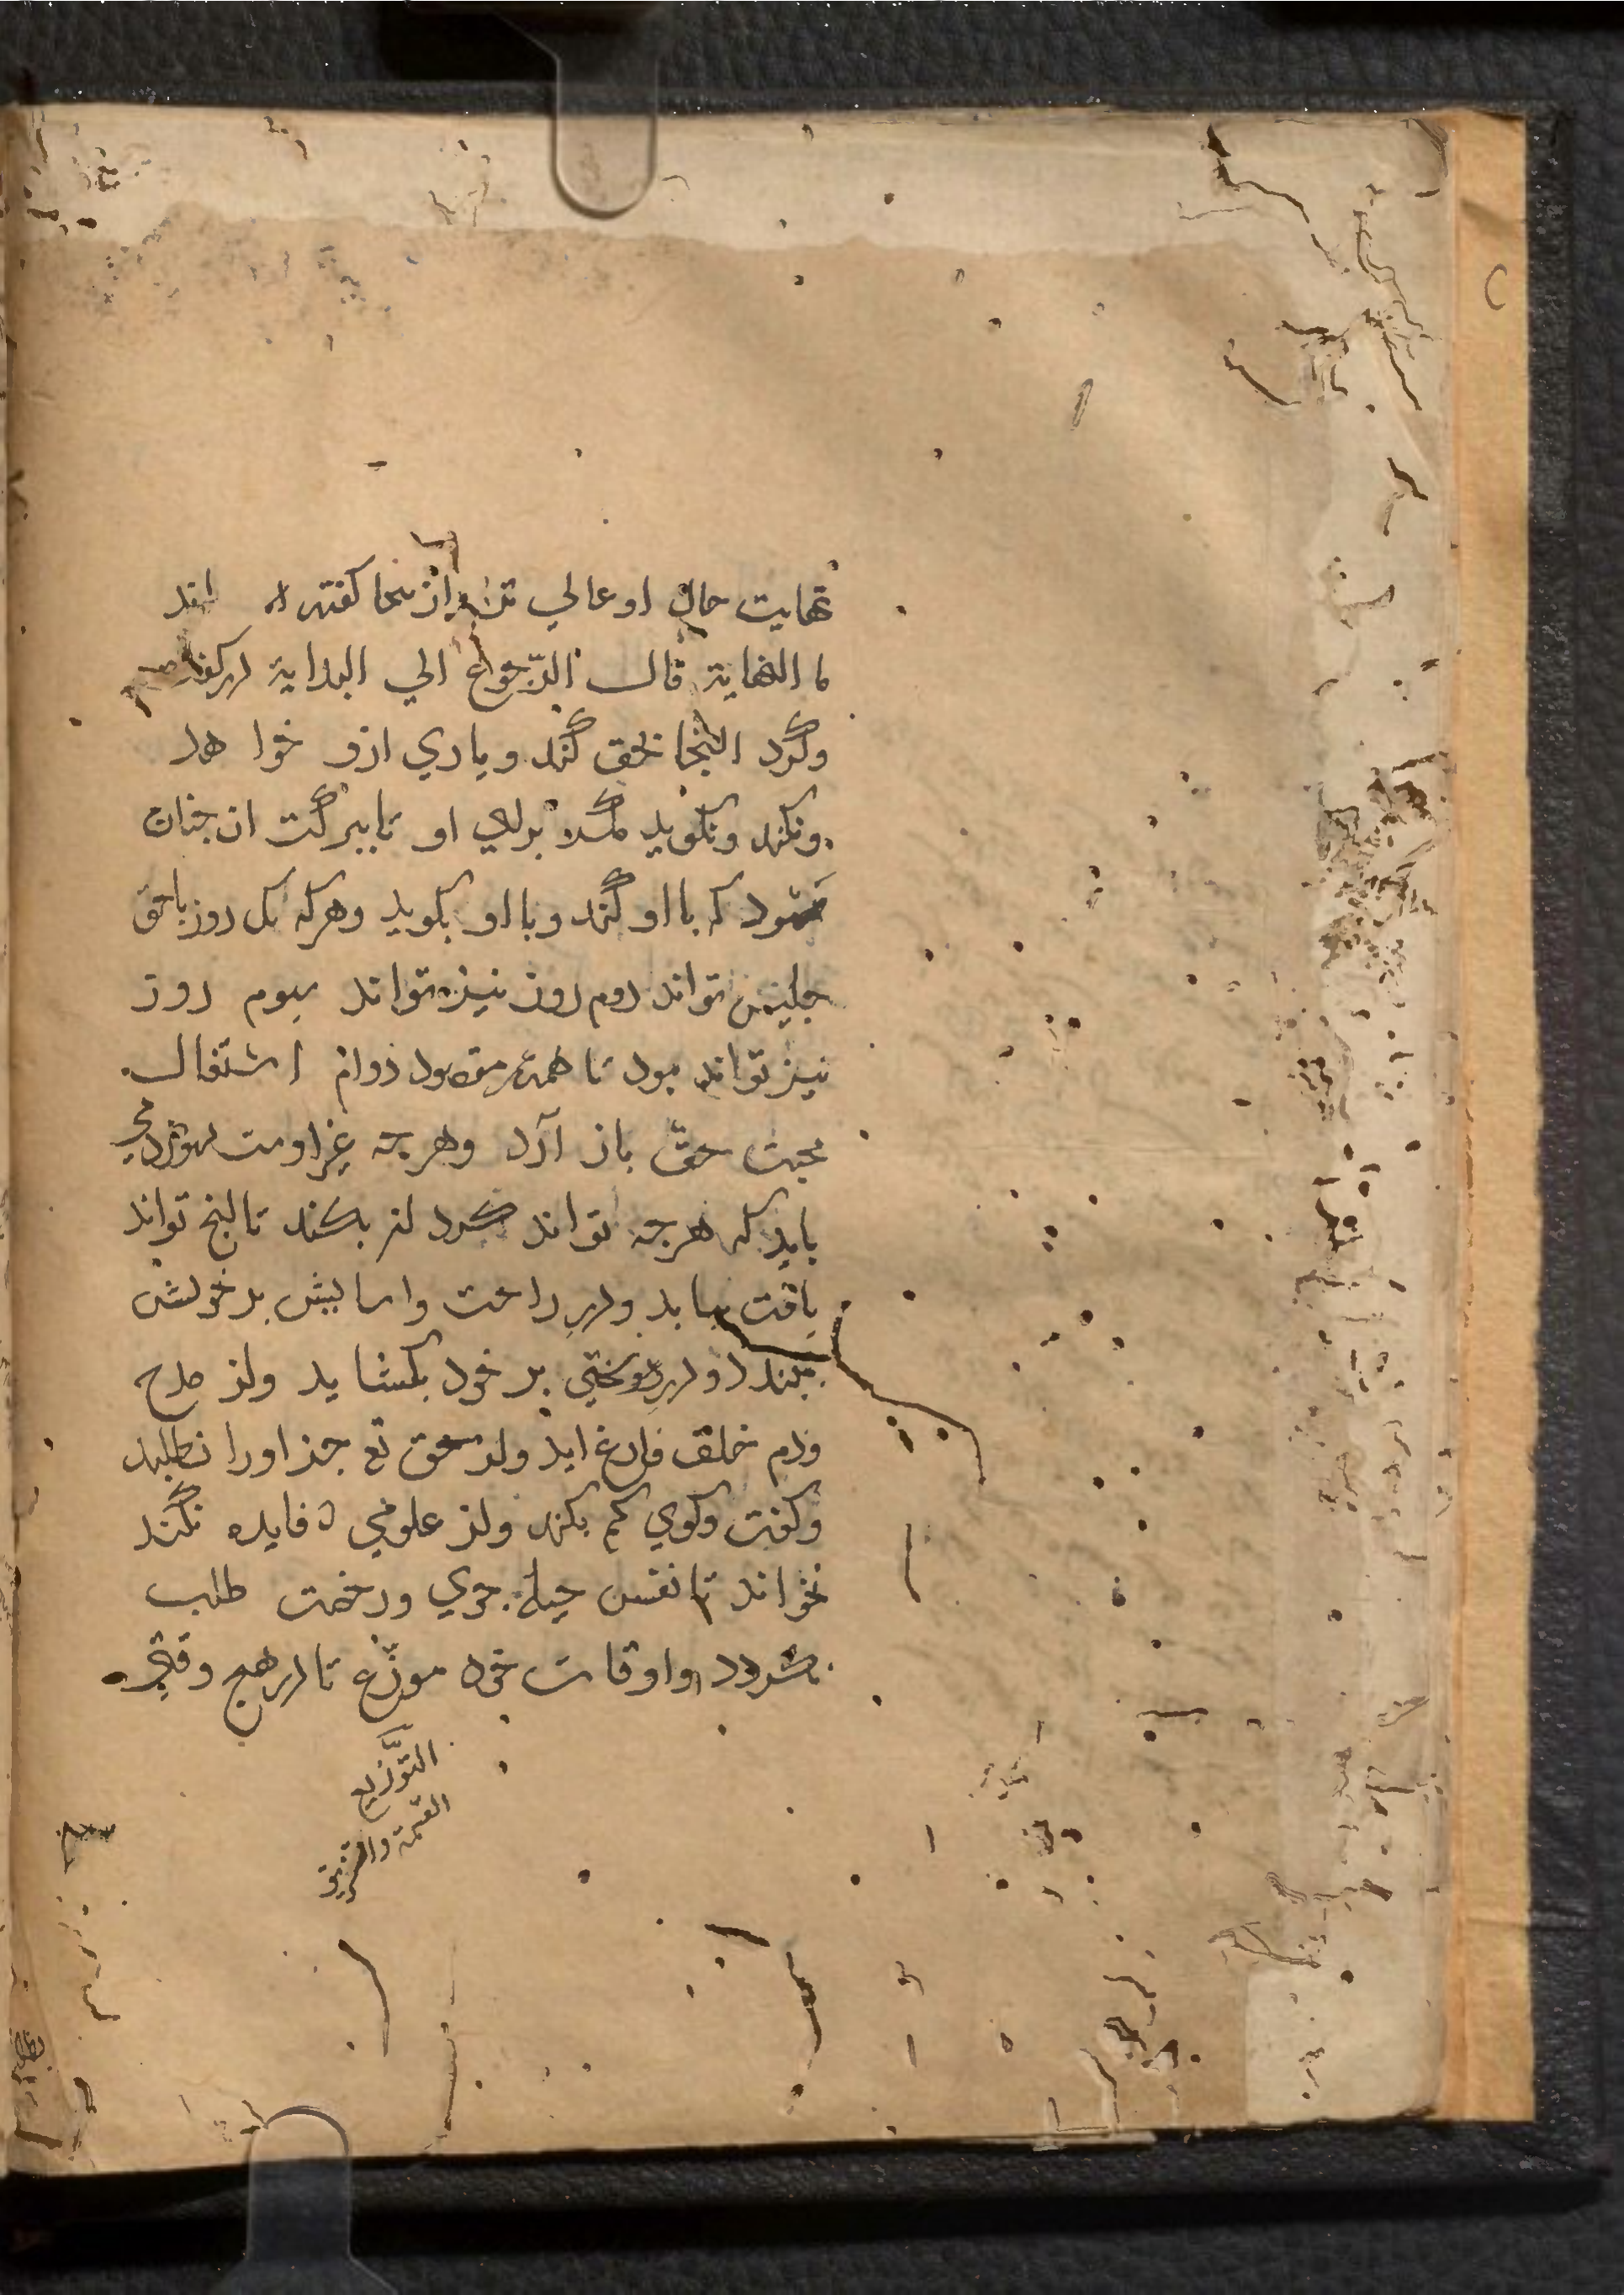 نهايت حال او عالي تر از انجا كفته اند
ما النهاية قال الرّجوع الي البداية
وكرد التجا بحق كند وياري ازو خوا هد
ونكند ونكويد مكر براي او تا ببركت ان جنان
شود كه با او كند وبا او بكويد وهركه يك روز با حق
جليس تواند دوم روز نيز تواند سيوم روز
نيز تواند بود تا همه دوام اشتغال
محبت حقّ باز آرد وهرجه غير اوست
بايد كه هرجه تواند كرد بكند تا انج تواند
يافت بيابد ودر راحت واسايش بر خويش
ببندد ودر سختي بر خود بكشايد واز مدح
وذم خلق فارغ ايد واز حق تع جز اورا نطلبد
وكفت وكوي كم بكند واز علومي فايده نكند
نخواند تا نفس حيله جوي ورخصت طلب
نكردد واوقات خود موزّع تا در هيج وقتي
التّوزيع
القسمة والتفريق